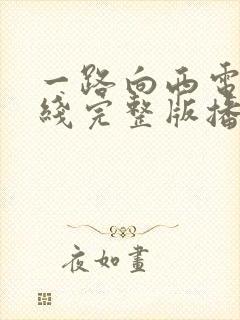 一路向西電
綫完整版播
夜如畫